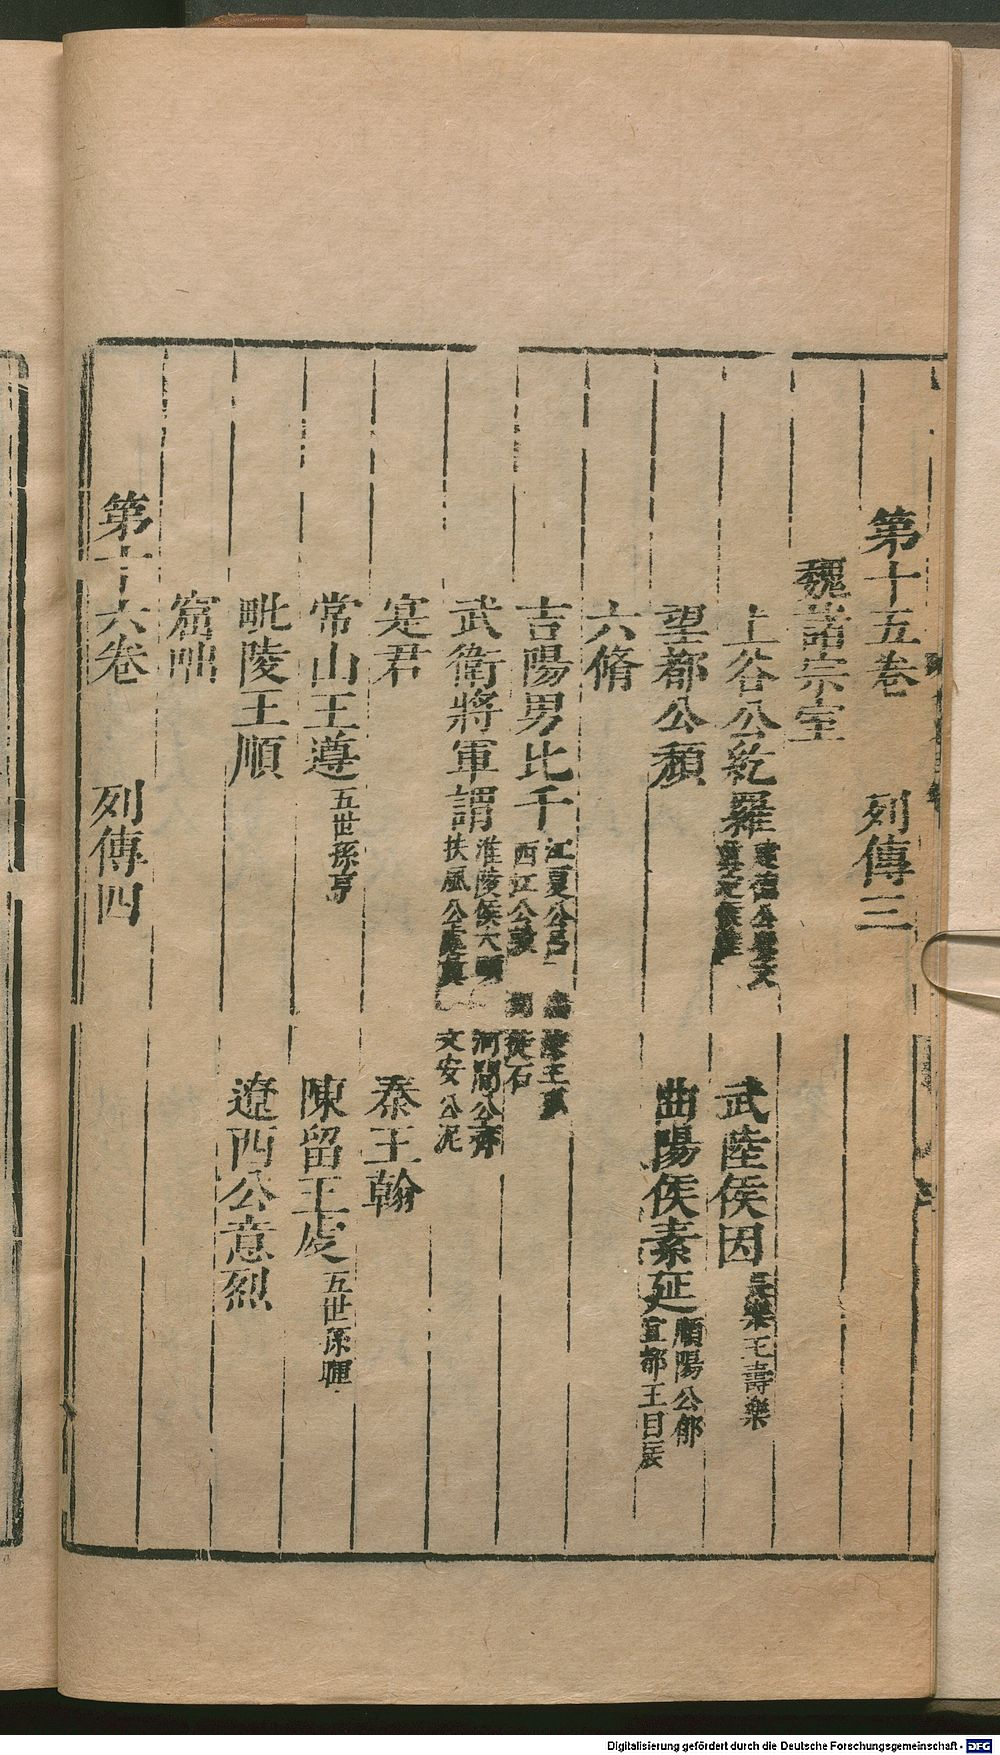 第十五卷　列傳三
魏諸宗室
上谷公紇羅 建德公嬰文 真定侯陸　武陸侯因 長樂王壽樂
望都公頽　曲陽侯素延 順陽公郁 宜都王目辰
六脩
吉陽男比干 江夏公呂 西江公 石
武衛將軍謂 淮陵侯大頭 河間公齊 扶風公處真 文安公泥
寔君　秦王翰
常山王遵 五世孫亨　陳留王虔 五世孫暉
毗陵王順　遼西公意烈
窟咄
第十六卷　列傳四
Digitalisierung gefördert durch die Deutsche Forschungsgemeinschaft - DFG